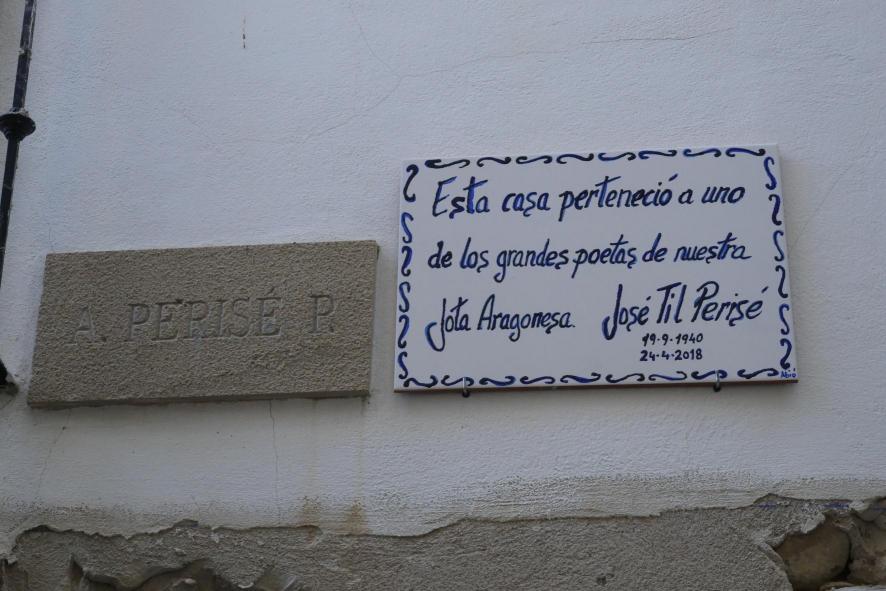 A PERISÉ P.
Esta casa perteneció a uno
de los grandes poetas de nuestra
Jota Aragonesa. José Til Perisé
19-9-1940
24-4-2018